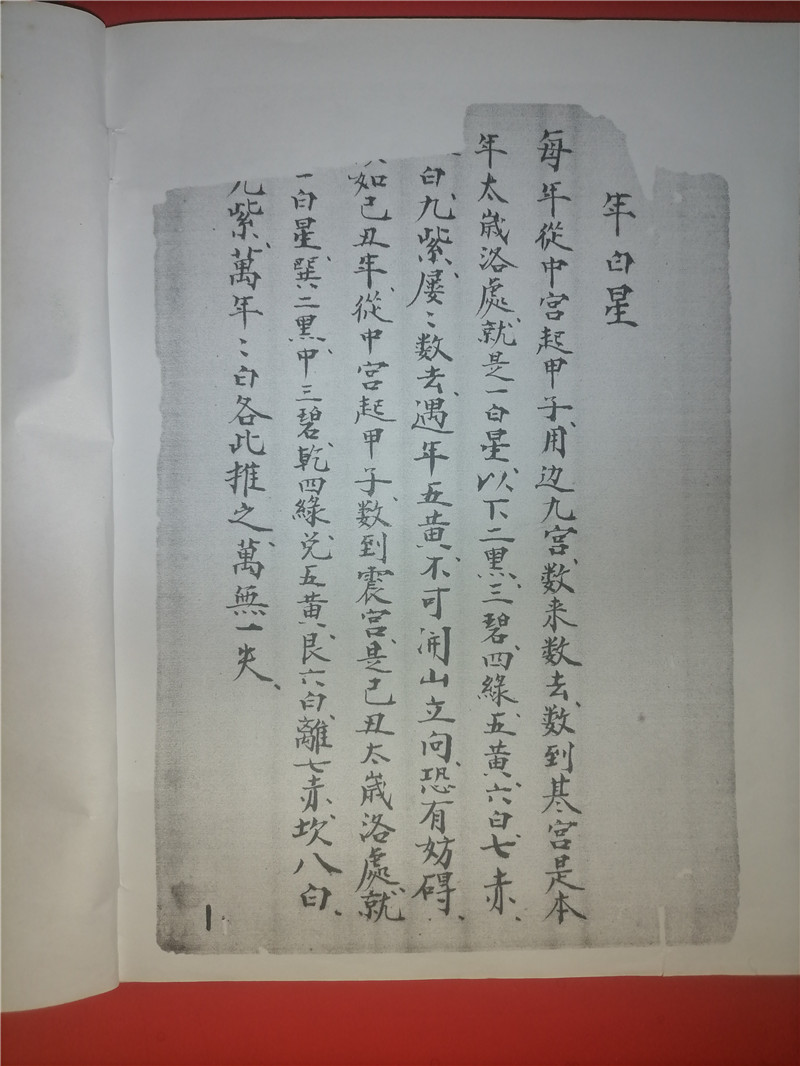 年白星
每年從中宫起甲子、用边九宫、数来数去、数到某宫是本
年太歲洛處、就是一白星、以下二黑、三碧、四綠、五黃、六白、七赤、
白、九紫、屡〻数去、遇年五黃、不可開山立向、恐有妨碍、
如己丑年、從中宫起甲子、数到震宫、是己丑太歲洛處、就
一白星、巽二黑、中三碧、乾四綠、兑五黃、艮六白、離七赤、坎八白、
九紫、萬年〻白各此推之、萬無一失、
1